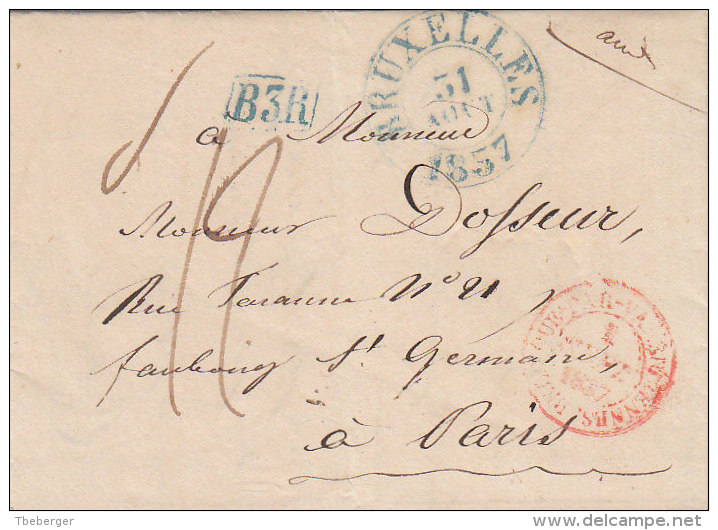 BRUXELLES
31
AOUT
1837
B3R
a Monsieur
Monsieur Dosseur,
Rue Taranne N° 21
faubourg St Germain,
à Paris
1837
Tbeberger
delcampe.net